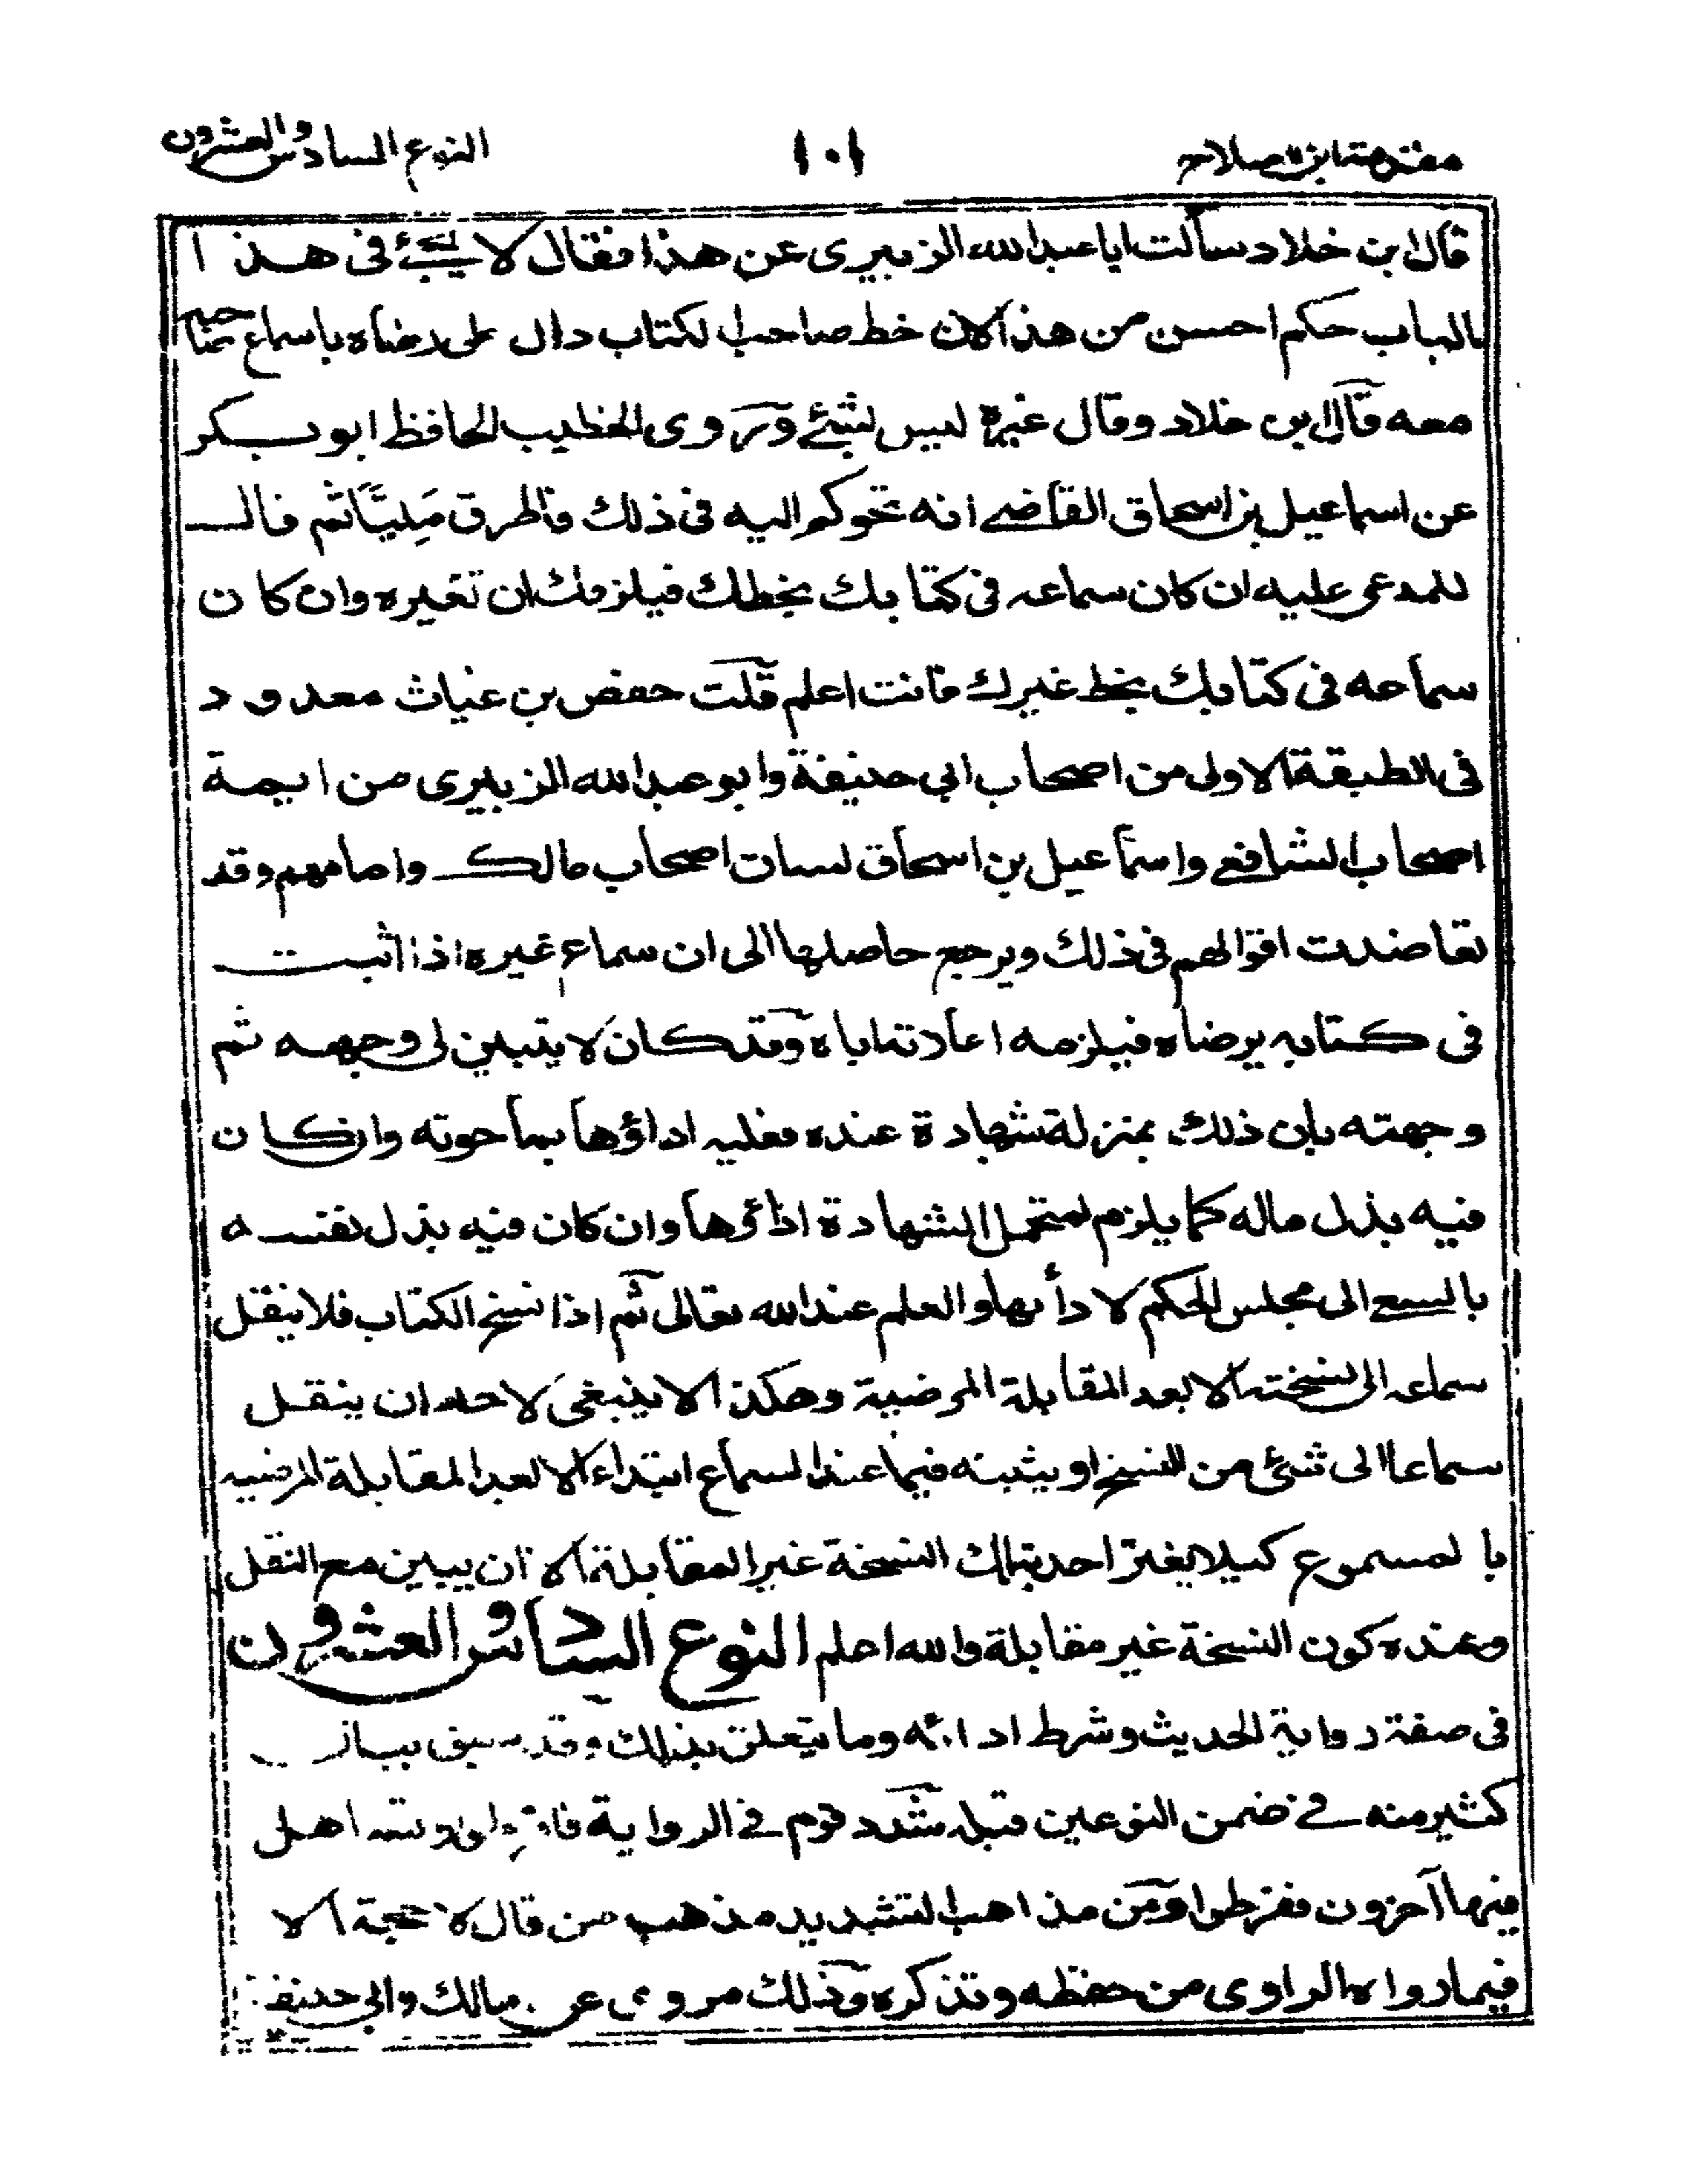 مقدمة ابن الصلاح
١٠١
النوع السادس والعشرون
قال ابن خلاد سألت ابا عبد الله الزبيرى عن هذا فقال لا يجئ فى هذا
الباب حكم احسن من هذا لان خط صاحب الكتاب دال على رضاه باسماع صاحبه
معه قال ابن خلاد وقال غيره ليس بشئ وروى الخطيب الحافظ ابو بكر
عن اسماعيل بن اسحاق القاضى انه تحوكم اليه فى ذلك فاطرق مَلِيَّا ثم قال
للمدعى عليه ان كان سماعه فى كتابك بخطك فيلزمك ان تعيره وان كان
سماعه فى كتابك بخط غيرك فانت اعلم قلت حفص بن غياث معدود
فى الطبقة الاولى من اصحاب ابي حنيفة وابو عبد الله الزبيرى من ايمة
اصحاب الشافعى واسماعيل بن اسحاق لسان اصحاب مالك وامامهم وقد
تعاضدت اقوالهم فى ذلك ويرجع حاصلها الى ان سماع غيره اذا ثبت
فى كتابه برضاه فيلزمه اعادته اياه وقد كان لا يتبين لى وجهه ثم
وجهته بان ذلك بمنزلة شهادة عنده فعليه اداؤها بما حوته وان كان
فيه بذل ماله كما يلزم متحمل الشهادة اداؤها وان كان فيه بذل نفسه
بالسعى الى مجلس الحكم لادائها والعلم عند الله تعالى ثم اذا نسخ الكتاب فلا ينقل
سماعه الى نسخته الا بعد المقابلة المرضية وهكذا لا ينبغى لاحد ان ينقل
سماعا الى شئ من النسخ او يثبته فيما عند السماع ابتداء الا بعد المقابلة المرضيه
بالمسموع كيلا يغتر احد بتلك النسخة غير المقابلة الا ان يبين مع النقل
وعنده كون النسخة غير مقابلة والله اعلم النوع السادس والعشرون
فى صفة رواية الحديث وشرط ادائه وما يتعلق بذلك وقد سبق بيان
كثير منه فى ضمن النوعين قبله شدد قوم فى الرواية اهل
فيها آخرون ففرطوا ومن مذاهب التشديد مذهب من قال لا حجة الا
فيما رواه الراوى من حفظه وتذكره وذلك مروى عن مالك وابي حنيفة